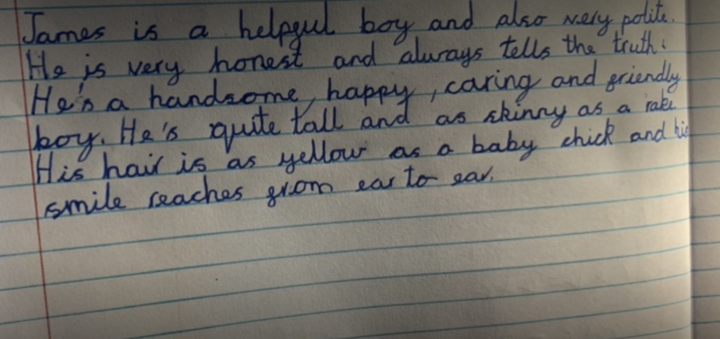 James is a helpful boy and also very polite.
He is very honest and always tells the truth.
He's a handsome, happy, caring and friendly
boy. He's quite tall and as skinny as a rake
His hair is as yellow as a baby chick and his
smile reaches from ear to ear.